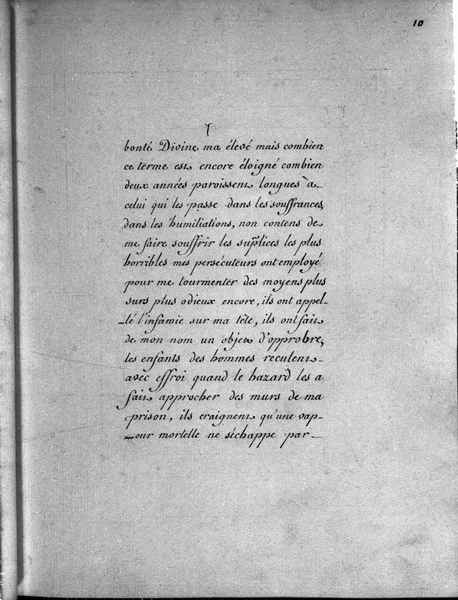 10
bonté Divine ma élevé mais combien
ce terme est encore éloigné combien
deux années paroissent longues a
celui qui les passe dans les souffrances,
dans les humiliations, non contens de
me faire souffrir les suplices les plus
horribles mes persécuteurs ont employé
pour me tourmenter des moyens plus
surs plus odieux encore, ils ont appel-
-lé l'infamie sur ma tête, ils ont fait
de mon nom un objet d'opprobre,
les enfants des hommes reculent
avec effroi quand le hazard les a
fait approcher des murs de ma
prison, ils craignent qu'une vap-
-eur mortelle ne séchappe par